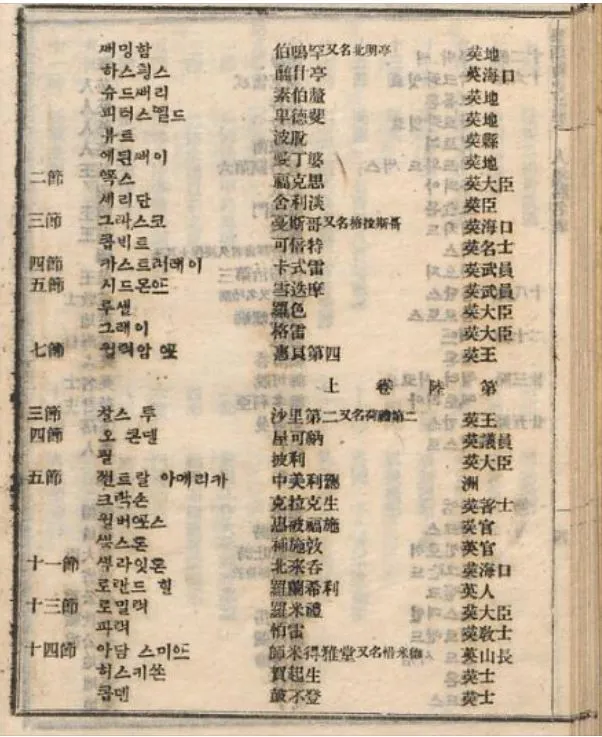 伯鳴罕又名北明亭 英地
하스팅스 英海口
슈드 素伯釐 英地
피터스 卑德斐 英地
波 英縣
에딘 丁婆 英地
二節 福克思 英大臣
셰리단 舍利淡 英臣
三節 그라스코 戛斯哥又名格拉斯哥 英海口
콥비트 可倍特 英名士
四節 카스트러래이 卡式雷 英武員
五節 시드몬 雪迭摩 英武員
루셀 羅色 英大臣
그래이 格雷 英大臣
七節 윌력암 惠第四 英王
第陸卷上
三節 찰스 투 沙里第二又名第二 英王
四節 오 콘델 屋可納 英議員
필 披利 英大臣
五節 센트랄 아메리카 中美利 洲
크락손 克拉克生 英善士
윌버 惠被福施 英官
스톤 施敦 英官
十一節 라잇톤 北來呑 英海口
로란드 힐 羅蘭希利 英人
十三節 로밀럭 羅米禮 英大臣
파력 怕雷 英敎士
十四節 아담 스미 師米得雅堂又名 英山長
허스키쏜 賀起生 英士
콥덴 不登 英士